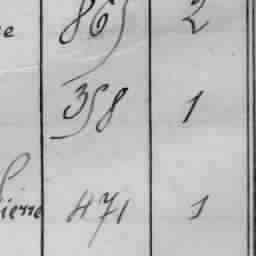 865 2
358 1
ierre 471 1